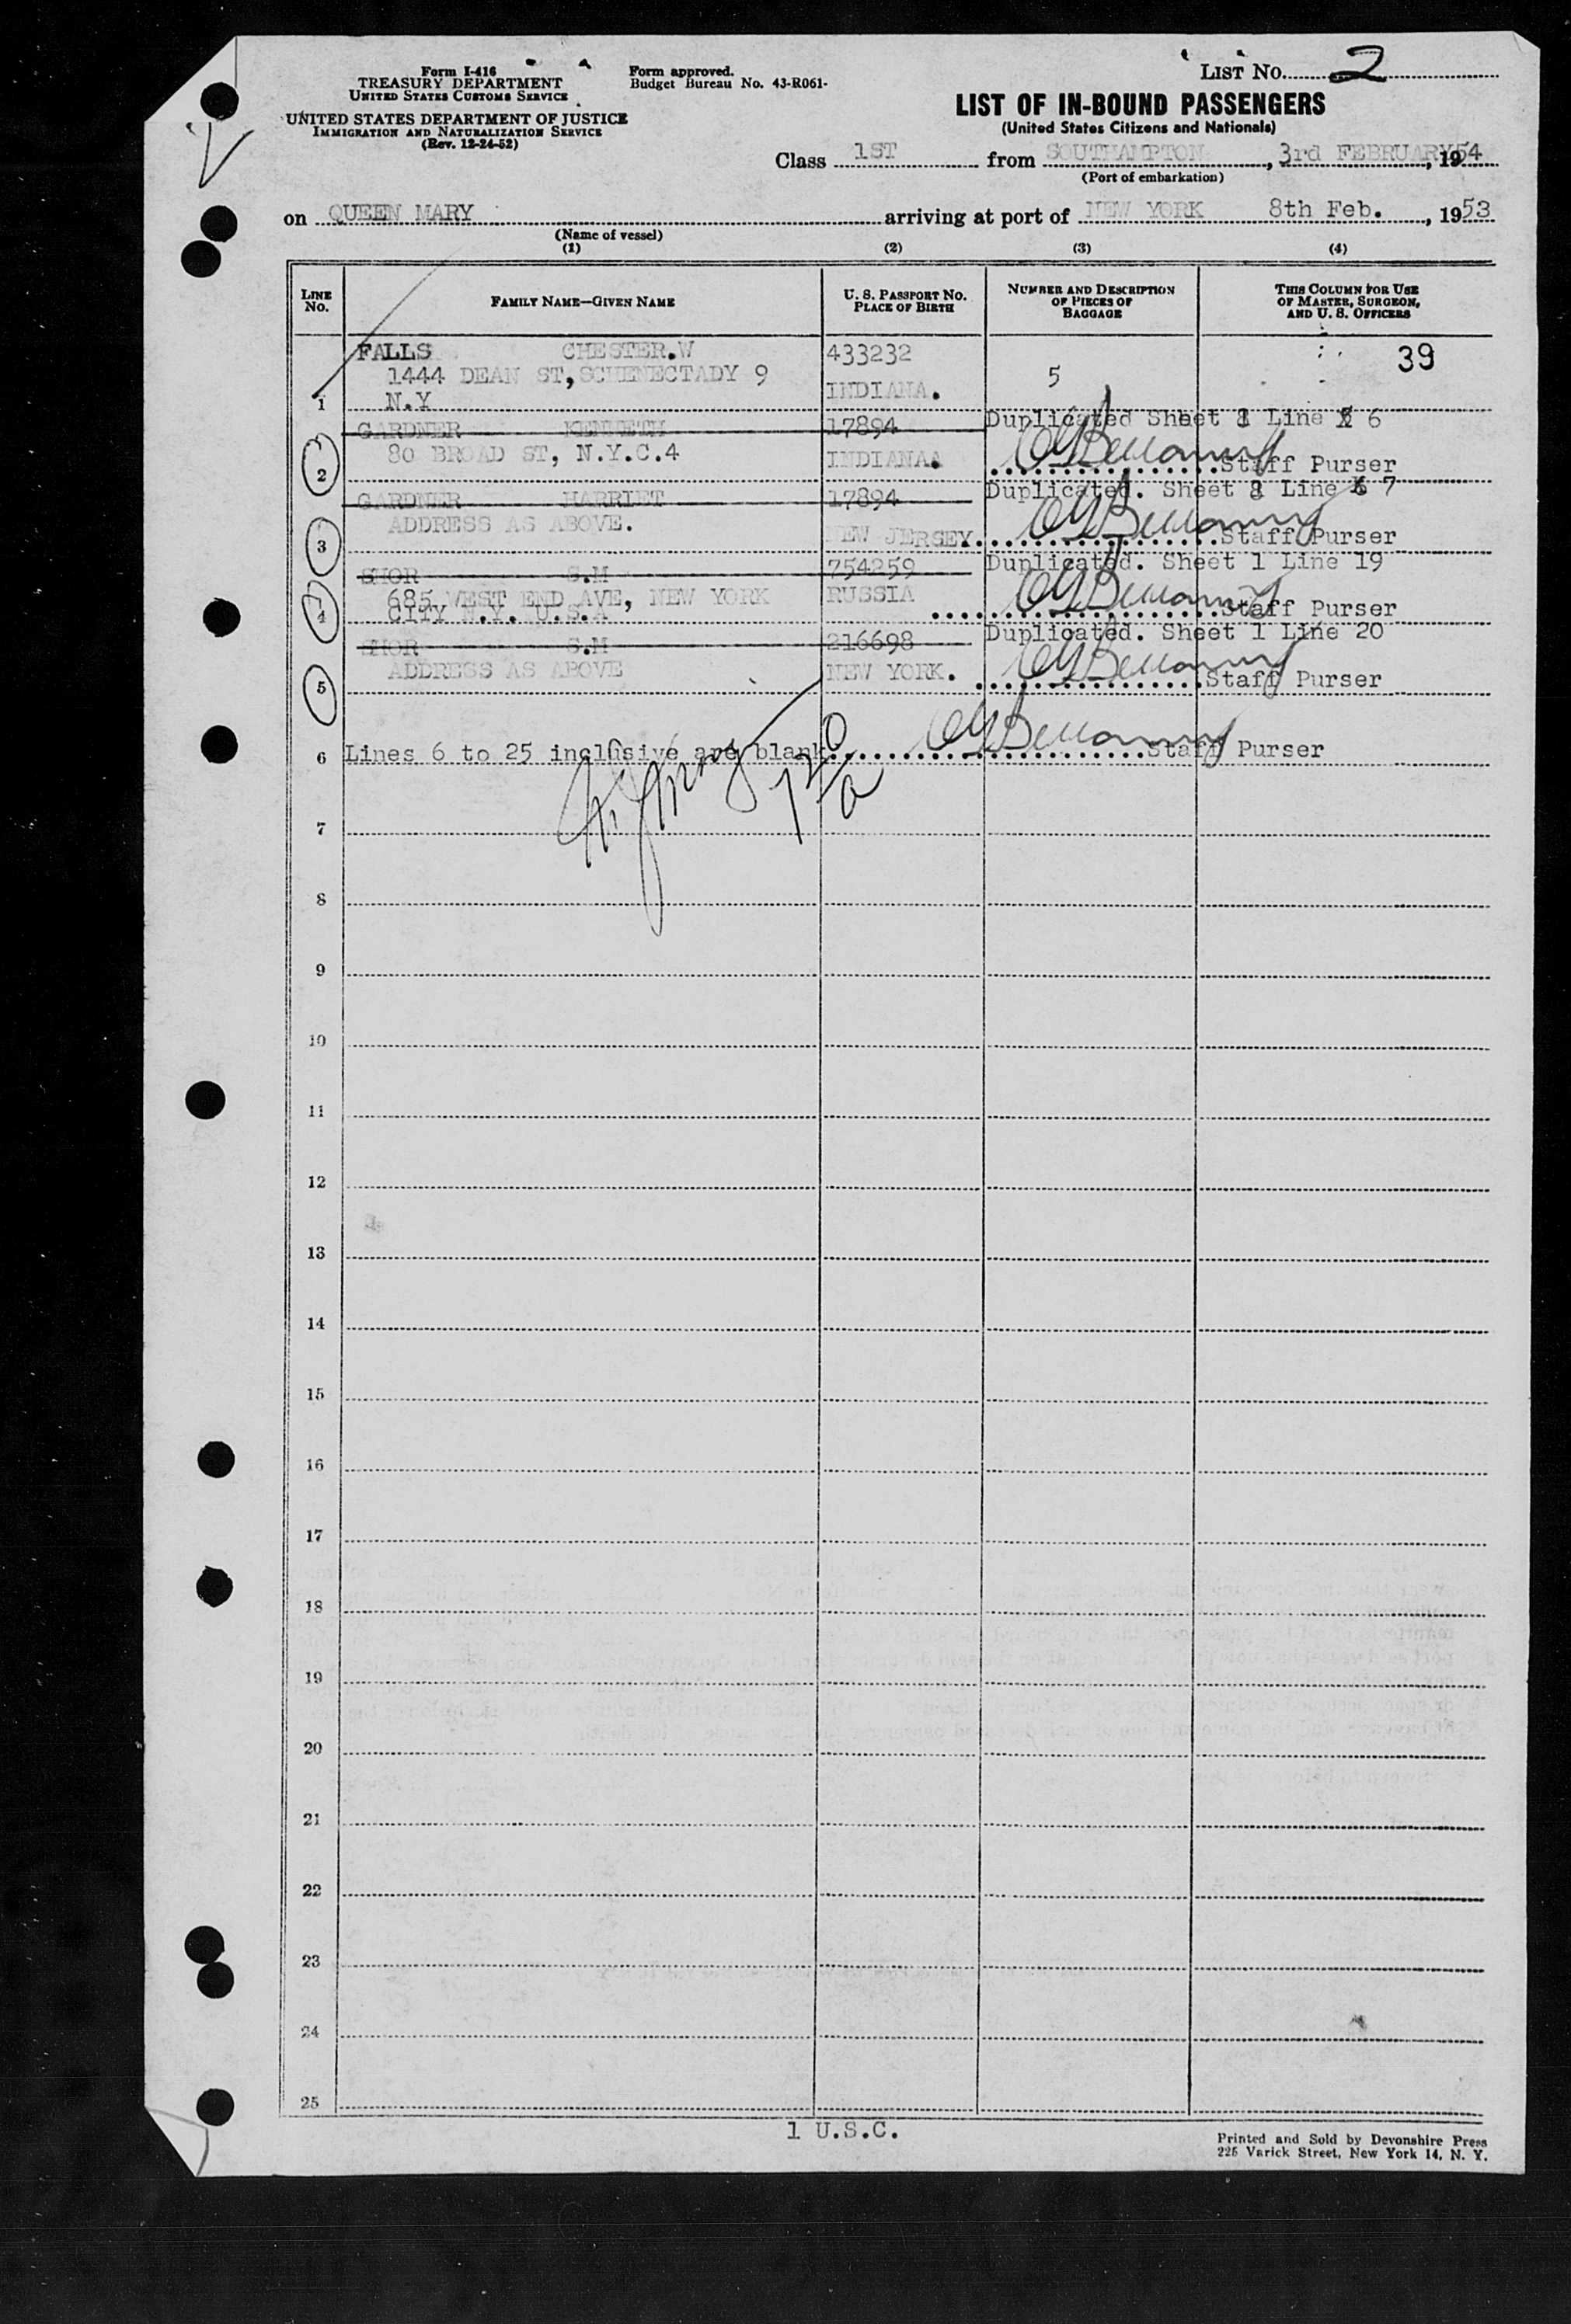 Form I-416
TREASURY DEPARTMENT
UNITED STATES CUSTOMS SERVICE
UNITED STATES DEPARTMENT OF JUSTICE
IMMIGRATION AND NATURALIZATION SERVICE
(Rev. 12-24-52)
Form approved.
Budget Bureau No. 43-R061-
LIST NO. 2
LIST OF IN-BOUND PASSENGERS
(United States Citizens and Nationals)
Class 1ST from SOUTHAMPTON, 3rd FEBRUARY, 1954
(Port of embarkation)
on QUEEN MARY arriving at port of NEW YORK 8th Feb., 1953
(Name of vessel)
(1) (2) (3) (4)
LINE NO. FAMILY NAME—GIVEN NAME U. S. PASSPORT NO. PLACE OF BIRTH NUMBER AND DESCRIPTION OF PIECES OF BAGGAGE THIS COLUMN FOR USE OF MASTER, SURGEON, AND U. S. OFFICERS
FALLS CHESTER.W 433232 39
1444 DEAN ST, SCHENECTADY 9 INDIANA. 5
1 N.Y
GARDNER KENNETH 17894 Duplicated Sheet 1 Line 6
80 BROAD ST, N.Y.C.4 INDIANA.
2 Staff Purser
GARDNER HARRIET 17894 Duplicated. Sheet 1 Line 7
ADDRESS AS ABOVE. NEW JERSEY.
3 Staff Purser
SHOR S.M 754259 Duplicated. Sheet 1 Line 19
685 WEST END AVE, NEW YORK RUSSIA
4 CITY N.Y. U.S.A Staff Purser
SHOR S.M 216698 Duplicated. Sheet 1 Line 20
ADDRESS AS ABOVE NEW YORK.
5 Staff Purser
6 Lines 6 to 25 inclusive are blank Staff Purser
7
8
9
10
11
12
13
14
15
16
17
18
19
20
21
22
23
24
25
1 U.S.C.
Printed and Sold by Devonshire Press
225 Varick Street, New York 14, N. Y.